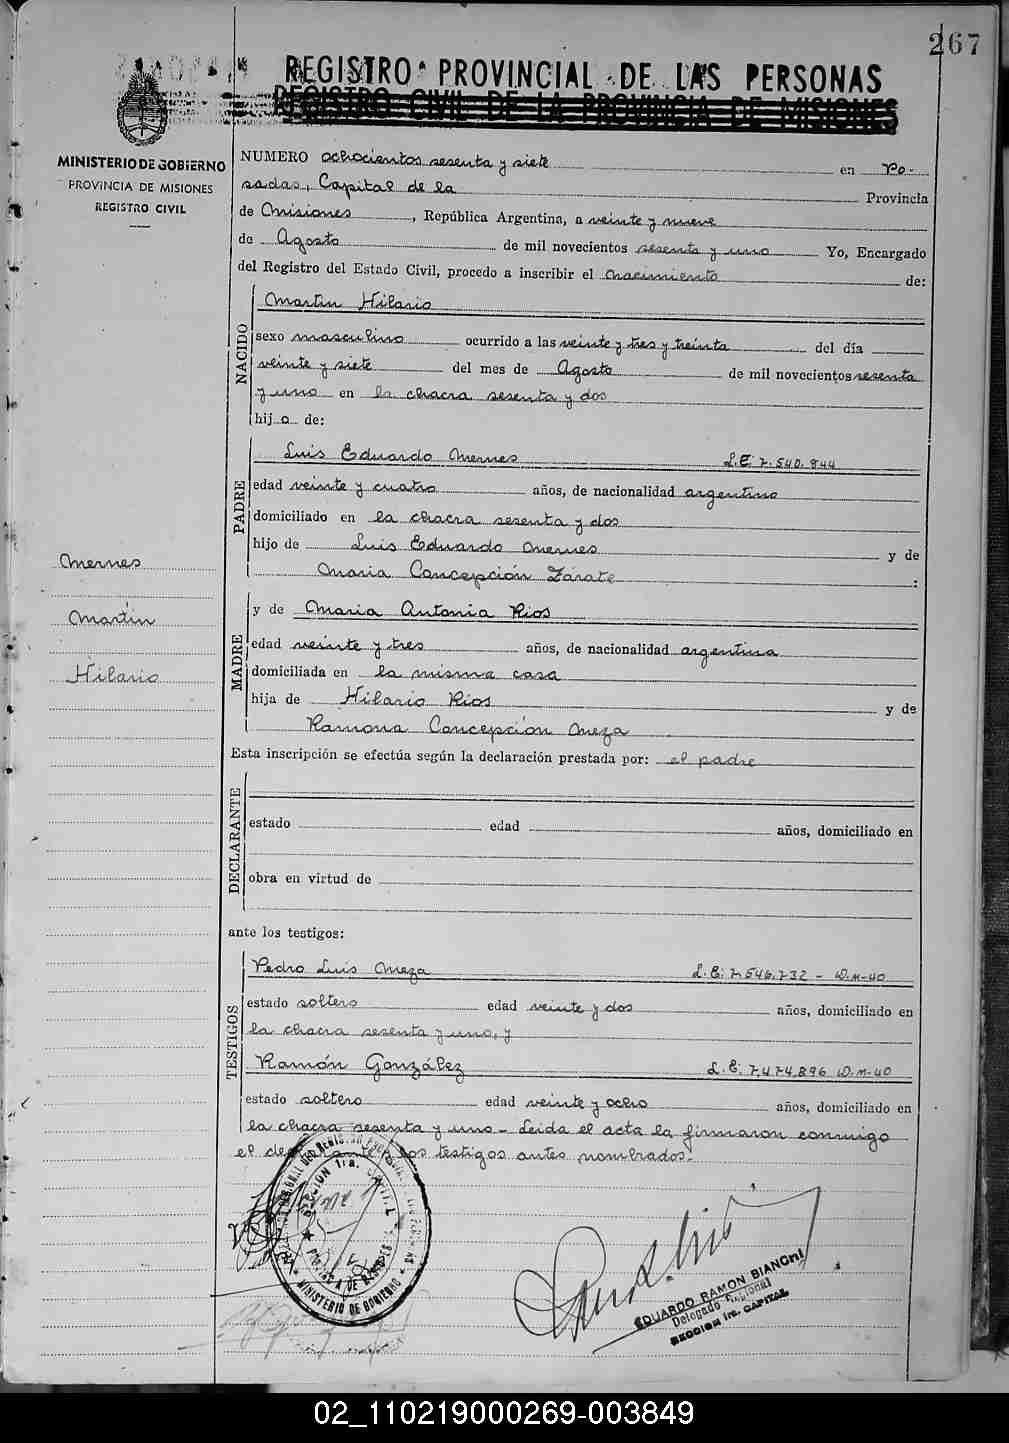 267
REGISTRO PROVINCIAL DE LAS PERSONAS
REGISTRO CIVIL DE LA PROVINCIA DE MISIONES
MINISTERIO DE GOBIERNO
PROVINCIA DE MISIONES
REGISTRO CIVIL
NUMERO ochocientos sesenta y siete en Po-
sadas, Capital de la Provincia
de Misiones, República Argentina, a veinte y nueve
de Agosto de mil novecientos sesenta y uno Yo, Encargado
del Registro del Estado Civil, procedo a inscribir el nacimiento de:
NACIDO
Martin Hilario
sexo masculino ocurrido a las veinte y tres y treinta del día
veinte y siete del mes de Agosto de mil novecientos sesenta
y uno en la chacra sesenta y dos
hijo de:
PADRE
Luis Eduardo Mernes L.E. 7.540.844
edad veinte y cuatro años, de nacionalidad argentino
domiciliado en la chacra sesenta y dos
hijo de Luis Eduardo Mernes y de
Maria Concepción Zárate :
Mernes
Martín
Hilario
MADRE
y de Maria Antonia Rios
edad veinte y tres años, de nacionalidad argentina
domiciliada en la misma casa
hija de Hilario Rios y de
Ramona Concepción Meza
Esta inscripción se efectúa según la declaración prestada por: el padre
DECLARANTE
estado edad años, domiciliado en
obra en virtud de
ante los testigos:
TESTIGOS
Pedro Luis Meza L.E. 7.546.732 - D.M-40
estado soltero edad veinte y dos años, domiciliado en
la chacra sesenta y uno, y
Ramón González L.E. 7.474.896 D.M-40
estado soltero edad veinte y ocho años, domiciliado en
la chacra sesenta y uno - Leida el acta la firmaron conmigo
el los testigos antes nombrados.-
SECCION 1ra. CAPITAL
MINISTERIO DE GOBIERNO
EDUARDO RAMON BIANCHI
Delegado Regional
SECCION 1ra. CAPITAL
02_110219000269-003849